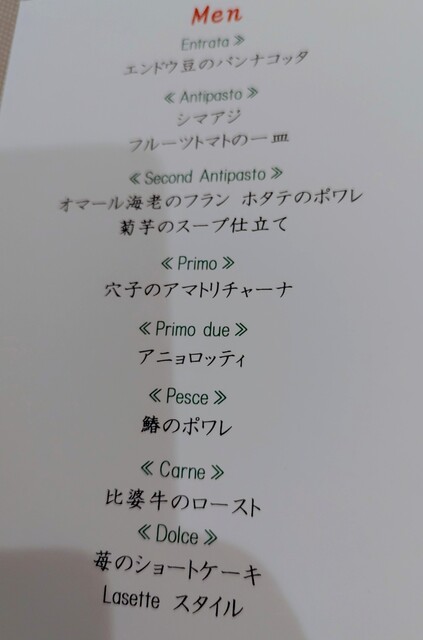 Men
Entrata 》
エンドウ豆のパンナコッタ
《 Antipasto 》
シマアジ
フルーツトマトの一皿
《 Second Antipasto 》
オマール海老のフラン ホタテのポワレ
菊芋のスープ仕立て
《 Primo 》
穴子のアマトリチャーナ
《 Primo due 》
アニョロッティ
《 Pesce 》
鰆のポワレ
《 Carne 》
比婆牛のロースト
《 Dolce 》
苺のショートケーキ
Lasette スタイル